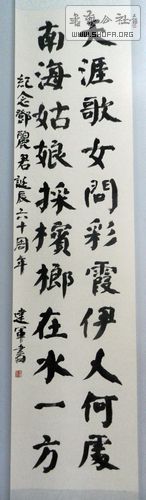 天涯歌女問彩霞伊人何處
南海姑娘採檳榔在水一方
紀念鄧麗君誕辰六十周年
建軍書
書法公社
WWW.SHUFA.ORG